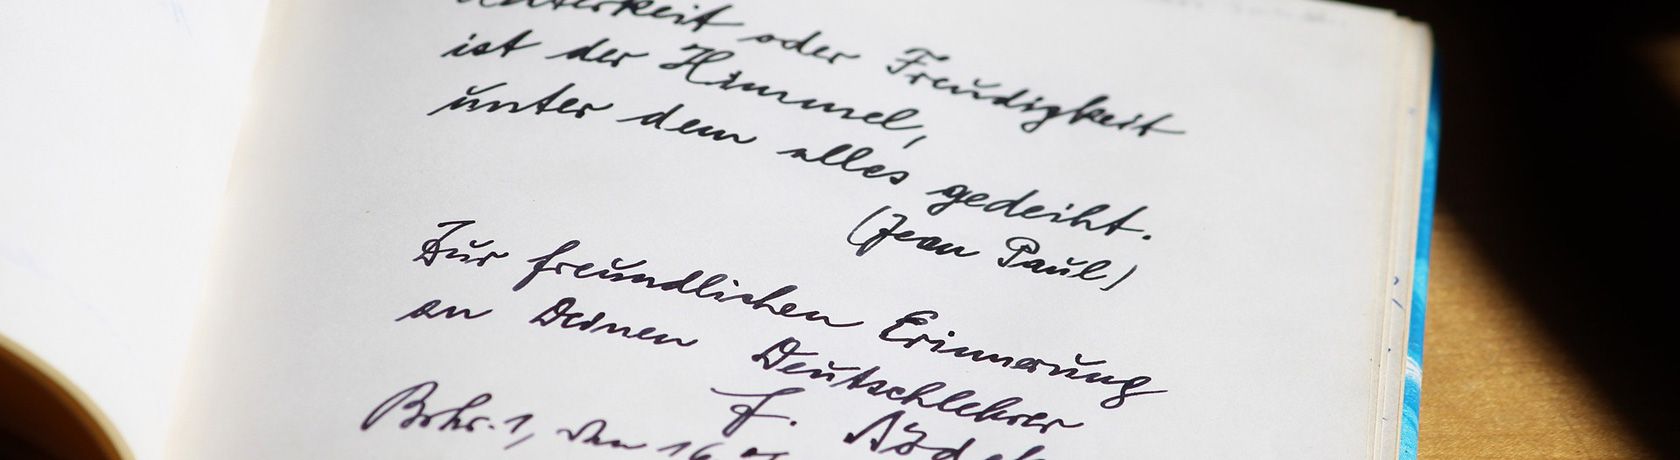 oder Freudigkeit
ist der Himmel,
unter dem alles gedeiht.
(Jean Paul)
Zur freundlichen Erinnerung
an Deinen Deutschlehrer
den 16